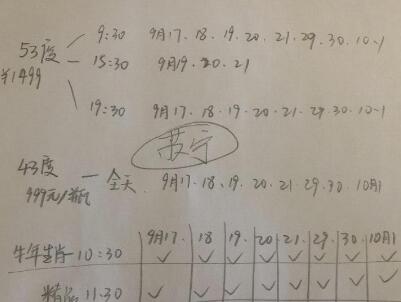 53度 9:30 9月17.18.19.20.21.29.30.10-1
15:30 9月19.20.21
¥1499
19:30 9月17.18.19.20.21.29.30.10-1
苏宁
43度 — 全天 9月17.18.19.20.21.29.30.10月1
999元/
9月17. 18 19. 20 21. 29. 30. 10月1
牛年生肖 10:30 ✓ ✓ ✓ ✓ ✓ ✓ ✓ ✓
精品 11.30 ✓ ✓ ✓ ✓ ✓ ✓ ✓ ✓